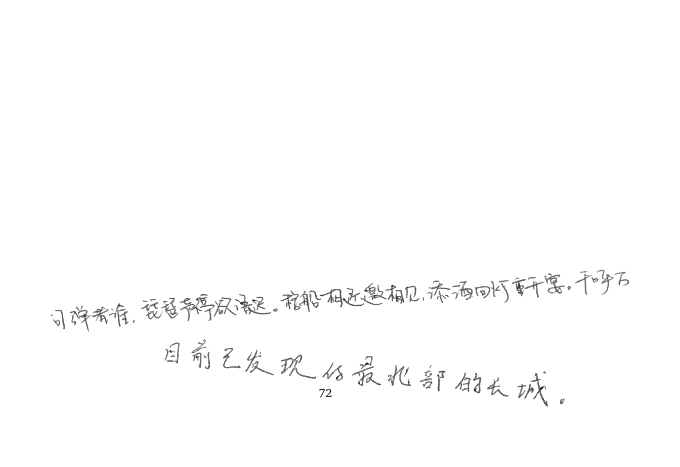 问弹者谁,琵琶声停欲语迟。移船相近邀相见,添酒回灯重开宴。千呼万
目前已发现的最北部的长城。
72